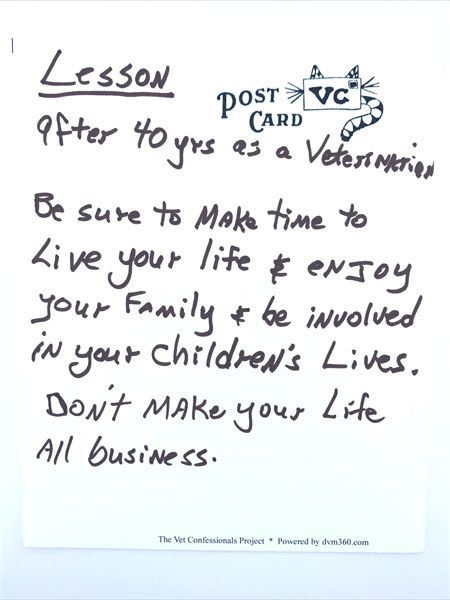 Lesson
POST CARD
VC
After 40 yrs as a Veterinarian
Be sure to Make time to
Live your life & enjoy
your Family & be involved
in your children's Lives.
Don't Make your Life
All business.
The Vet Confessionals Project * Powered by dvm360.com